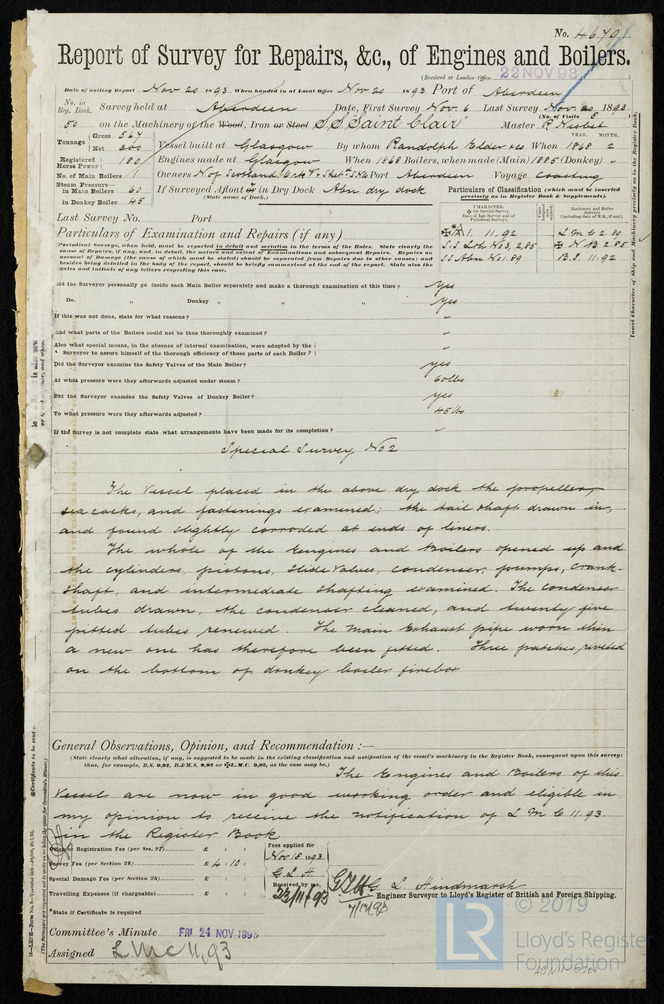 No. 4670
Report of Survey for Repairs, &c., of Engines and Boilers.
(Received at London Office 22 NOV 93
Date of writing Report Nov 20 1893 When handed in at Local Office Nov 20 1893 Port of Aberdeen
No. in Reg. Book. Survey held at Aberdeen Date, First Survey Nov. 6 Last Survey Nov. 20 1893
(No. of Visits 8)
50 on the Machinery of the Wood, Iron or Steel S.S. "Saint Clair" Master R Nisbet
Tonnage Gross 567 Net 300 Vessel built at Glasgow By whom Randolph Elder & Co When 1868 2
YEAR. MONTH.
Registered Horse Power 180 Engines made at Glasgow When 1868 Boilers, when made (Main) 1885 (Donkey) -
No. of Main Boilers 1 Owners N of Scotland & O & Shetd S N Co Port Aberdeen Voyage Coasting
Steam Pressure in Main Boilers 60 If Surveyed Afloat or in Dry Dock Abn dry dock
in Donkey Boiler 45 (State name of Dock.)
Particulars of Classification (which must be inserted precisely as in Register Book & Supplements).
CHARACTER.
Machinery and Boiler Surveys
A 1. 11.92 L M C 2.89
S.S Lth No 3, 2.85 N B 2.85
SS Abn No 1. 89 B.S. 11.92
Last Survey No. Port
Particulars of Examination and Repairs (if any)
(Periodical Surveys, when held, must be reported in detail and seriatim in the terms of the Rules. State clearly the
cause of Repairs, if any, and, in detail, the nature and extent of Examinations and subsequent Repairs. Repairs on
account of Damage (the cause of which must be stated) should be separated from Repairs due to other causes; and
besides being detailed in the body of the report, should be briefly summarised at the end of the report. State also the
dates and initials of any letters respecting this case.
Did the Surveyor personally go inside each Main Boiler separately and make a thorough examination at this time? Yes
Do. " Donkey " " " Yes
If this was not done, state for what reasons? -
And what parts of the Boilers could not be thus thoroughly examined? -
Also what special means, in the absence of internal examination, were adopted by the
Surveyor to assure himself of the thorough efficiency of those parts of each Boiler? -
Did the Surveyor examine the Safety Valves of the Main Boiler? yes
At what pressure were they afterwards adjusted under steam? 60 lbs
Did the Surveyor examine the Safety Valves of Donkey Boiler? yes
To what pressure were they afterwards adjusted? 45 lbs
If the Survey is not complete state what arrangements have been made for its completion? -
Special Survey No 2
The Vessel placed in the above dry dock the propeller,
sea cocks, and fastenings examined; the tail shaft drawn in,
and found slightly corroded at ends of liners.
The whole of the Engines and Boilers opened up and
the cylinders, pistons, slide valves, condenser, pumps, crank-
shaft, and intermediate shafting examined. The condenser
tubes drawn, the condenser cleaned, and twenty five
pitted tubes renewed. The Main Exhaust pipe worn thin
a new one has therefore been fitted. Three patches riveted
on the bottom of donkey boiler firebox
General Observations, Opinion, and Recommendation :—
(State clearly what alteration, if any, is suggested to be made in the existing classification and notification of the vessel's machinery in the Register Book, consequent upon this survey;
thus, for example, B.S. 9,92, B.&M.S. 9,92 or L.M.C. 9,92, as the case may be.)
The Engines and Boilers of this
Vessel are now in good working order and eligible in
my opinion to receive the notification of L M C 11.93.
in the Register Book
Office or Registration Fee (per Sec. 27) £ : : Fees applied for
Survey Fee (per Section 28) £ 4 : 10 : Nov 18 1893
Special Damage Fee (per Section 28) £ : : G. L. H.
Travelling Expenses (if chargeable) £ : : Received by me,
23/11/93
G L Hindmarsh
Engineer Surveyor to Lloyd's Register of British and Foreign Shipping.
*State if Certificate is required
Committee's Minute FRI 24 NOV. 1893
Assigned L M C 11,93
Insert Character of Ship and Machinery precisely as in the Register Book.
© 2019
LR
Lloyd's Register
Foundation